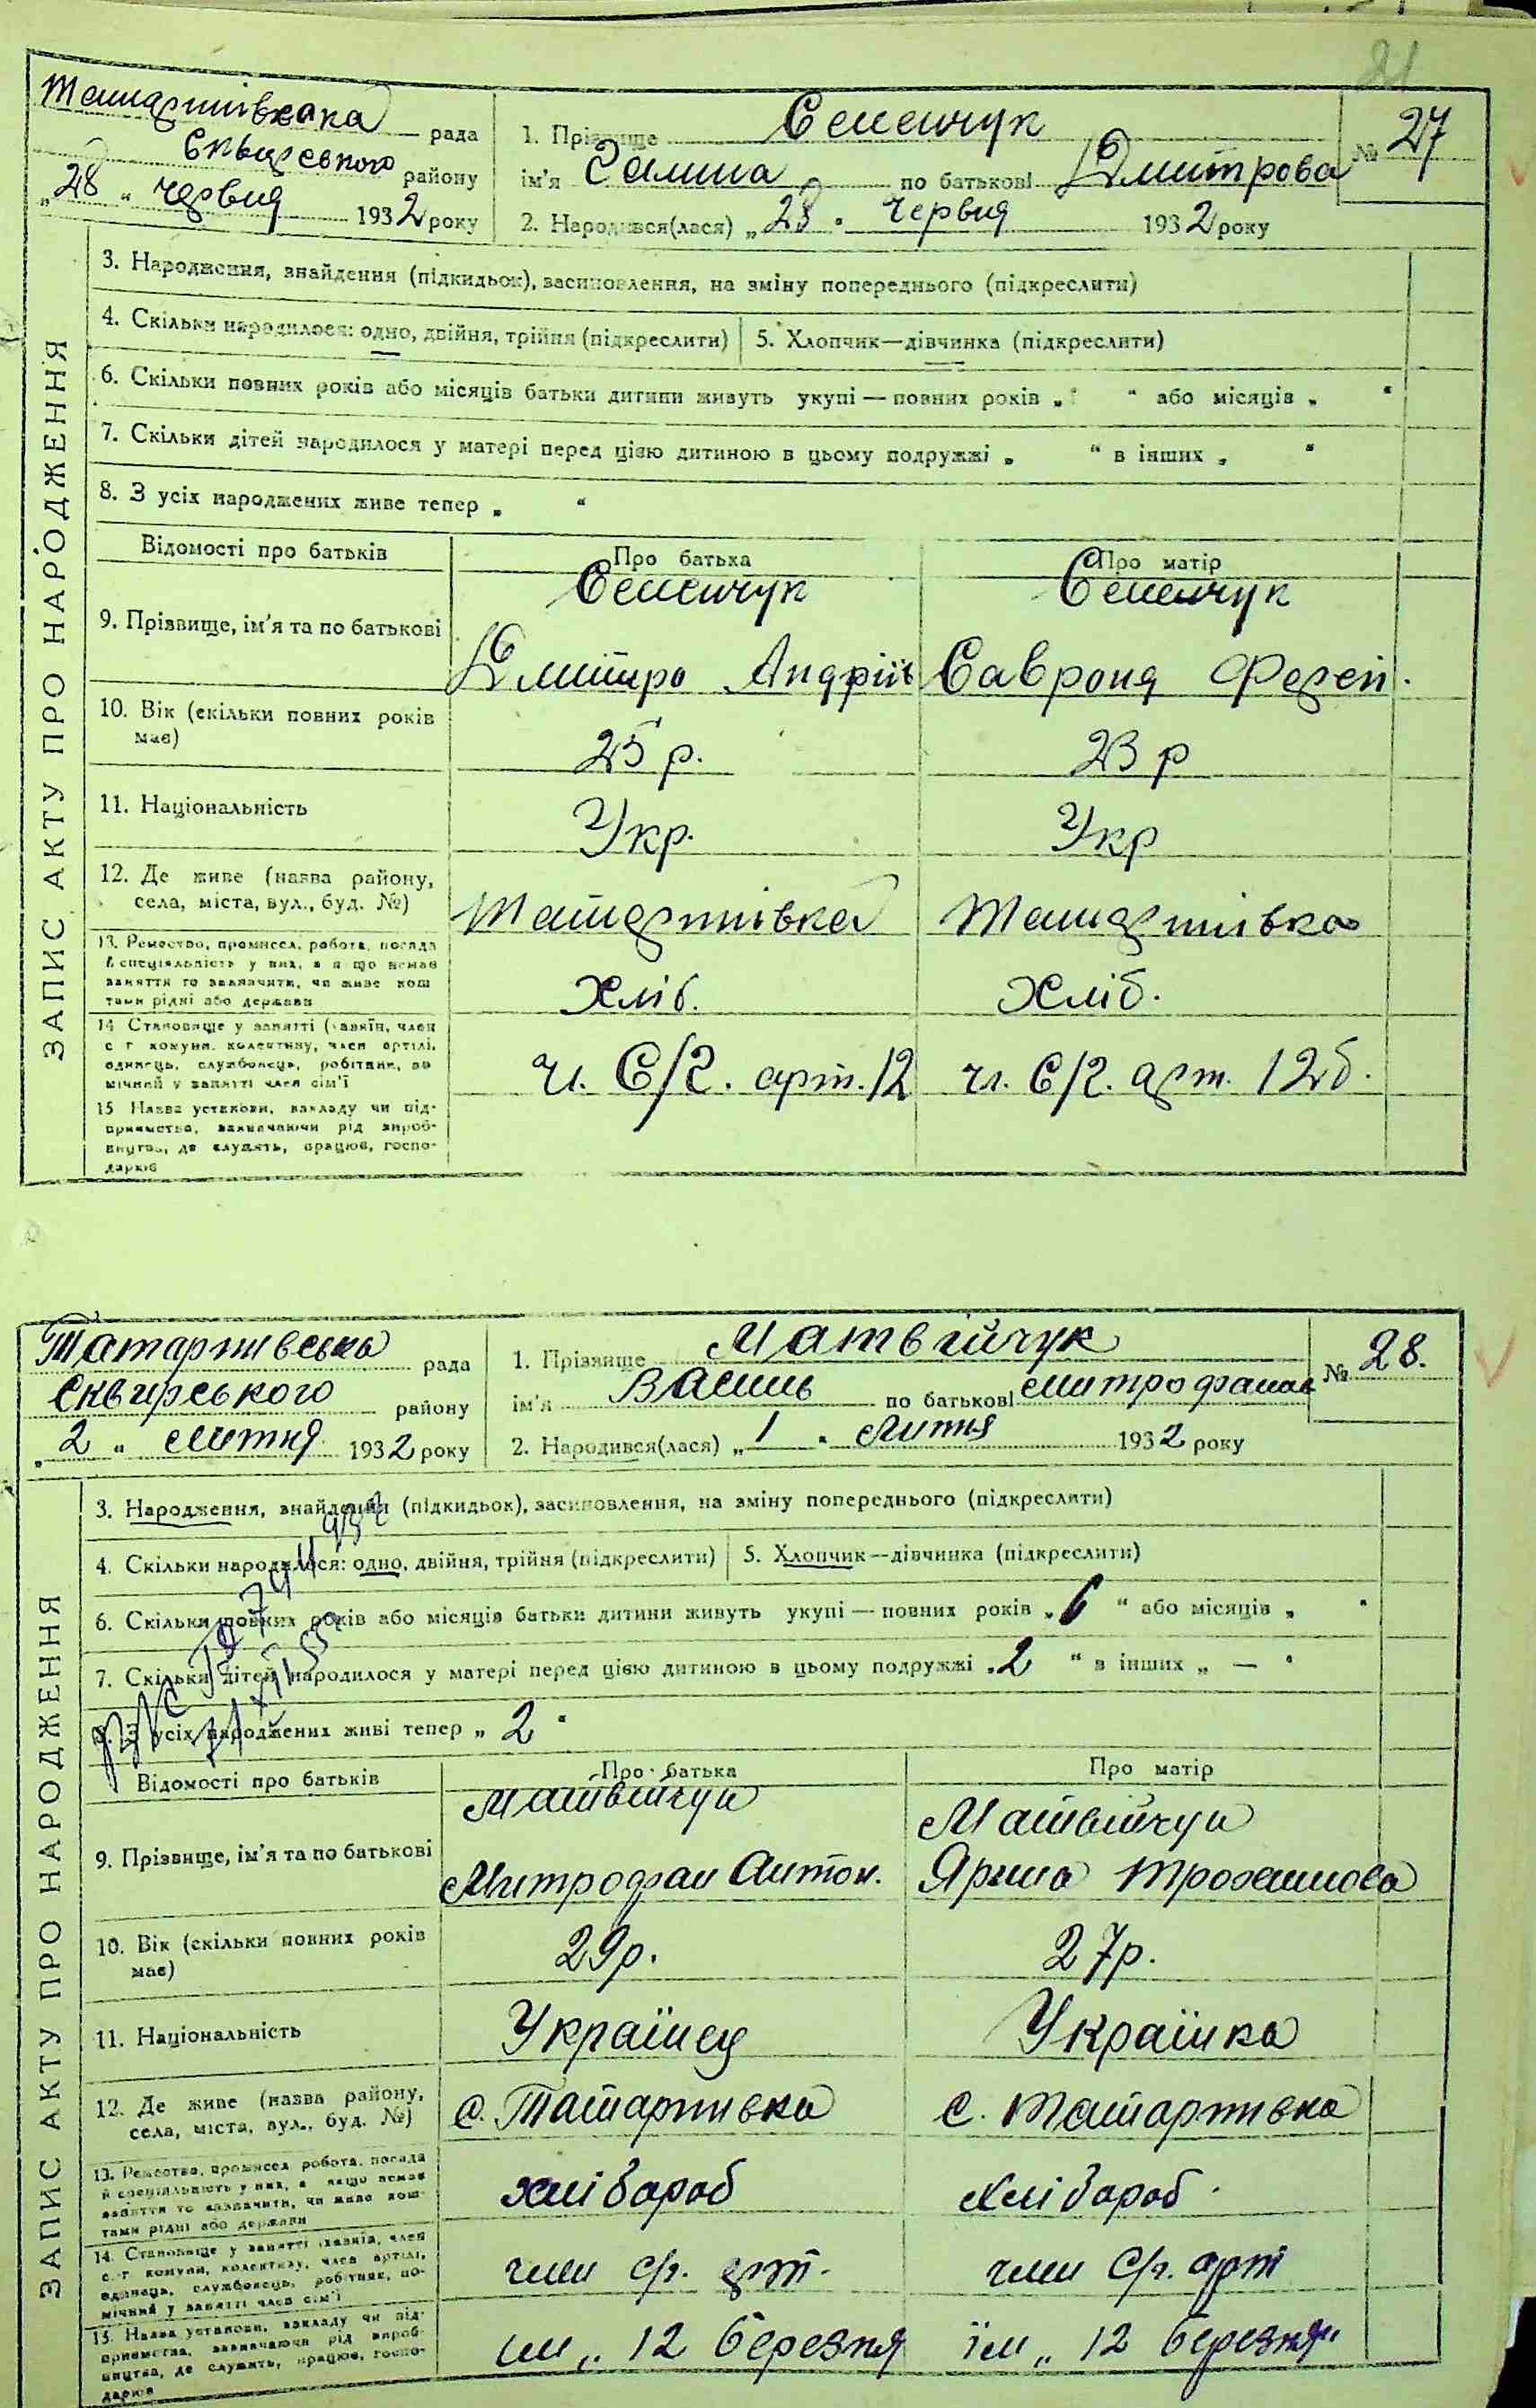 21
Татартівська рада
Сквирського району
„28“ червня 1932 року
1. Прізвище Семенчук
№ 27
ім'я Галина по батькові Дмитрова
2. Народився(лася) „28“ червня 1932 року
ЗАПИС АКТУ ПРО НАРОДЖЕННЯ
3. Народження, знайдення (підкидьок), засиновлення, на зміну попереднього (підкреслити)
4. Скільки народилося: одно, двійня, трійня (підкреслити)
5. Хлопчик—дівчинка (підкреслити)
6. Скільки повних років або місяців батьки дитини живуть укупі — повних років „ “ або місяців „ “
7. Скільки дітей народилося у матері перед цією дитиною в цьому подружжі „ “ в інших „ “
8. З усіх народжених живе тепер „ “
Відомості про батьків
Про батька
Про матір
9. Прізвище, ім'я та по батькові
Семенчук
Дмитро Андріів
Семенчук
Савроня Федей.
10. Вік (скільки повних років має)
25 р.
23 р
11. Національність
Укр.
Укр
12. Де живе (назва району, села, міста, вул., буд. №)
Татартівка
Татартівка
13. Ремество, промисел, робота, посада й спеціяльність у них, а якщо немає заняття то зазначити, чи живе коштами рідні або держави
Хліб.
Хліб.
14. Становище у занятті (хазяїн, член с.-г. комуни, колективу, член артілі, одинець, службовець, робітник, помічний у занятті член сім'ї
чл. С/Г. арт. 12
чл. С/Г. арт. 12 б.
15. Назва установи, закладу чи підприємства, зазначаючи рід виробництва, де служить, працює, господарює
Татартивська рада
Сквирського району
„2“ липня 1932 року
1. Прізвище Матвійчук
№ 28.
ім'я Василь по батькові Митрофанов
2. Народився(лася) „1“ липня 1932 року
ЗАПИС АКТУ ПРО НАРОДЖЕННЯ
3. Народження, знайдення (підкидьок), засиновлення, на зміну попереднього (підкреслити)
4. Скільки народилося: одно, двійня, трійня (підкреслити)
5. Хлопчик—дівчинка (підкреслити)
6. Скільки повних років або місяців батьки дитини живуть укупі — повних років „6“ або місяців „ “
7. Скільки дітей народилося у матері перед цією дитиною в цьому подружжі „2“ в інших „ — “
8. З усіх народжених живі тепер „2“
Відомості про батьків
Про батька
Про матір
9. Прізвище, ім'я та по батькові
Матвійчук
Митрофан Антон.
Матвійчук
Ярина Трохимова
10. Вік (скільки повних років має)
29р.
27р.
11. Національність
Українец
Українка
12. Де живе (назва району, села, міста, вул., буд. №)
с. Татартивка
с. Татартивка
13. Ремество, промисел робота, посада й спеціяльність у них, а якщо немає заняття то зазначити, чи живе коштами рідні або держави
хлібороб
хлібороб.
14. Становище у занятті (хазяїн, член с.-г. комуни, колективу, член артілі, одинець, службовець, робітник, помічний у занятті член сім'ї
член С/г. арт.
член С/г. арт
15. Назва установи, закладу чи підприємства, зазначаючи рід виробництва, де служить, працює, господарює
ім „12 березня
їм „12 березня"